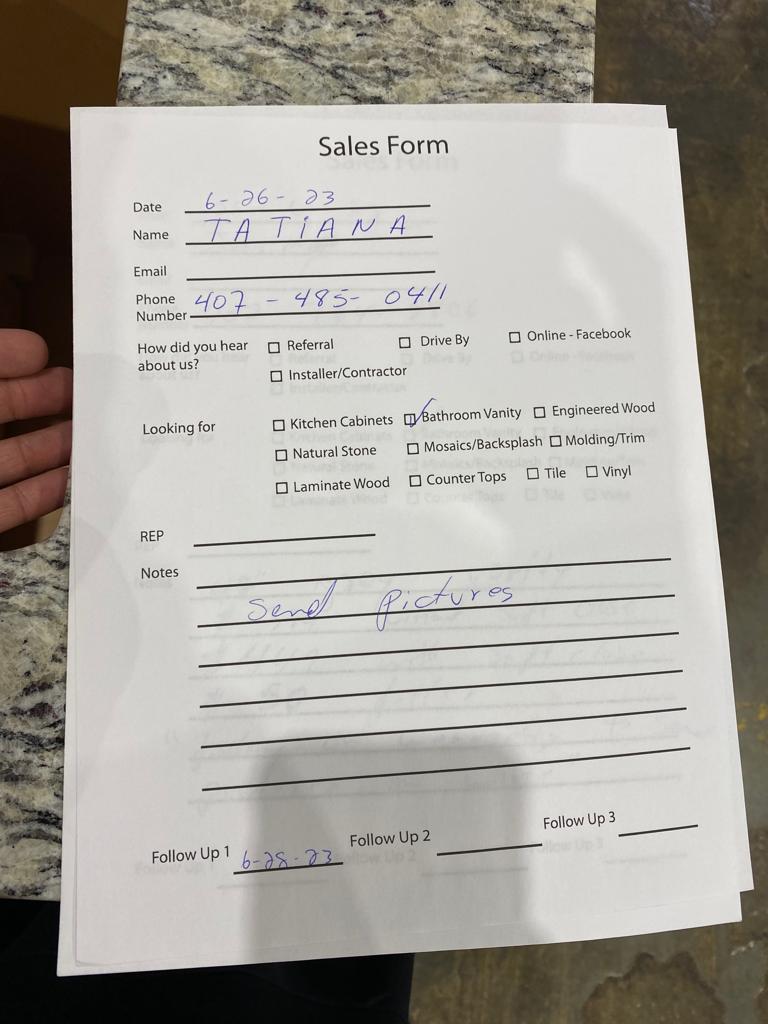 Sales Form
Date 6-26-23
Name TATiANA
Email
Phone Number 407-485-0411
How did you hear about us? Referral Drive By Online - Facebook
Installer/Contractor
Looking for Kitchen Cabinets Bathroom Vanity Engineered Wood
Natural Stone Mosaics/Backsplash Molding/Trim
Laminate Wood Counter Tops Tile Vinyl
REP
Notes
Send pictures
Follow Up 1 6-28-23 Follow Up 2 Follow Up 3